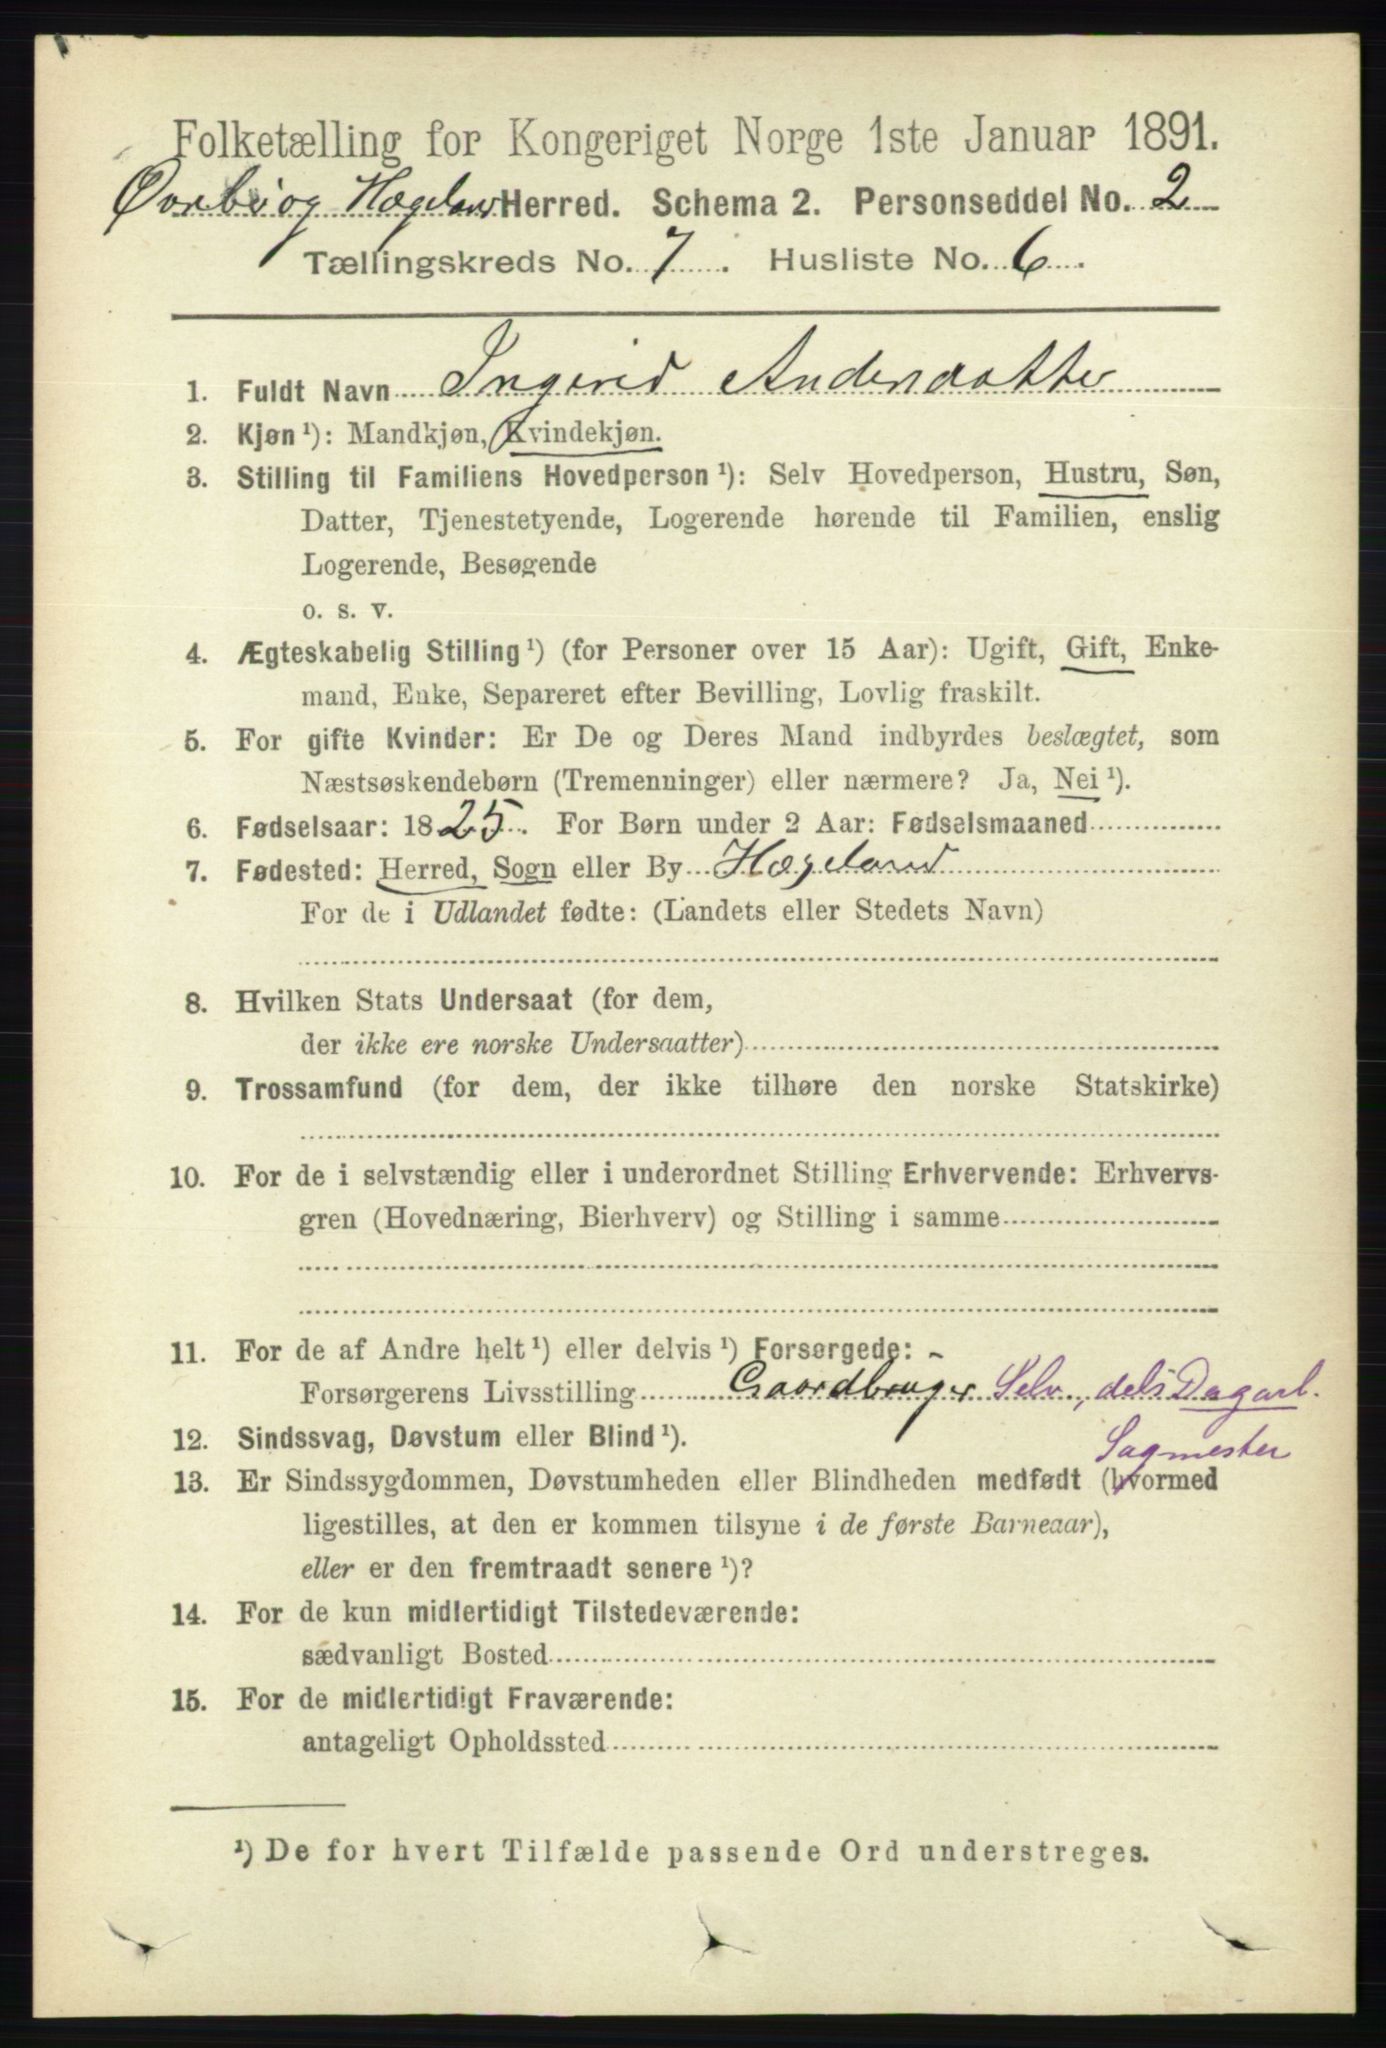 Folketælling for Kongeriget Norge 1ste Januar 1891.
Øvrebø og Hægeland Herred. Schema 2. Personseddel No. 2
Tællingskreds No. 7. Husliste No. 6.
1. Fuldt Navn Ingerid Andersdatter
2. Kjøn ¹): Mandkjøn, Kvindekjøn.
3. Stilling til Familiens Hovedperson ¹): Selv Hovedperson, Hustru, Søn,
Datter, Tjenestetyende, Logerende hørende til Familien, enslig
Logerende, Besøgende
o. s. v.
4. Ægteskabelig Stilling ¹) (for Personer over 15 Aar): Ugift, Gift, Enke-
mand, Enke, Separeret efter Bevilling, Lovlig fraskilt.
5. For gifte Kvinder: Er De og Deres Mand indbyrdes beslægtet, som
Næstsøskendebørn (Tremenninger) eller nærmere? Ja, Nei ¹).
6. Fødselsaar: 1825. For Børn under 2 Aar: Fødselsmaaned
7. Fødested: Herred, Sogn eller By Hægeland
For de i Udlandet fødte: (Landets eller Stedets Navn)
8. Hvilken Stats Undersaat (for dem,
der ikke ere norske Undersaatter)
9. Trossamfund (for dem, der ikke tilhøre den norske Statskirke)
10. For de i selvstændig eller i underordnet Stilling Erhvervende: Erhvervs-
gren (Hovednæring, Bierhverv) og Stilling i samme
11. For de af Andre helt ¹) eller delvis ¹) Forsørgede: -
Forsørgerens Livsstilling Gaardbruger Selv, dels Dagarb.
Sagmester
12. Sindssvag, Døvstum eller Blind ¹).
13. Er Sindssygdommen, Døvstumheden eller Blindheden medfødt (hvormed
ligestilles, at den er kommen tilsyne i de første Barneaar),
eller er den fremtraadt senere ¹)?
14. For de kun midlertidigt Tilstedeværende:
sædvanligt Bosted
15. For de midlertidigt Fraværende:
antageligt Opholdssted
¹) De for hvert Tilfælde passende Ord understreges.